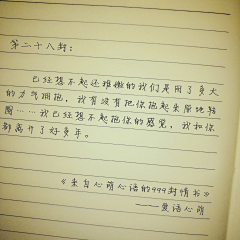 第二十八封：
已经想不起还难缠的我们是用了多大
的力气拥抱，我有没有把你抱起来原地转
圈……我已经想不起抱你的感觉，我和你
别离开了好多年。
《来自心萌心话的999封情书》
——爱语心萌